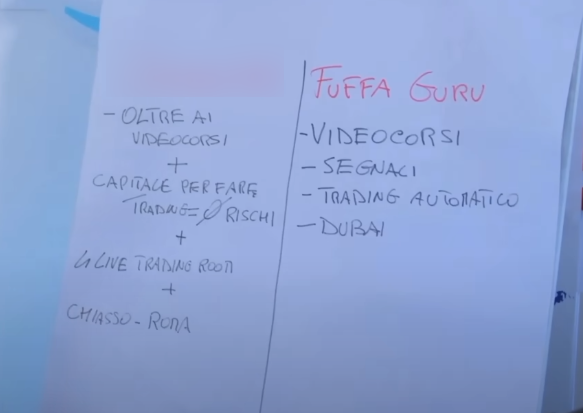 - OLTRE AI
VIDEOCORSI
+
CAPITALE PER FARE
TRADING = Ø RISCHI
+
4 LIVE TRADING ROOM
+
CHIASSO - ROMA
FUFFA GURU
- VIDEOCORSI
- SEGNALI
- TRADING AUTOMATICO
- DUBAI